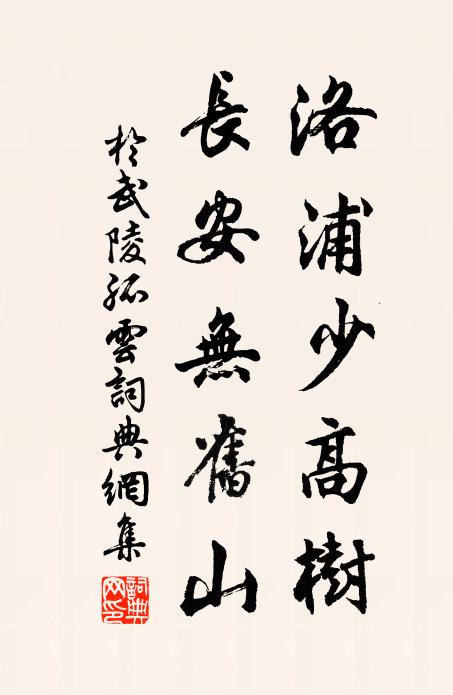 洛浦少高樹
長安無舊山
於武陵孤雲詞典網集
詞典
網印